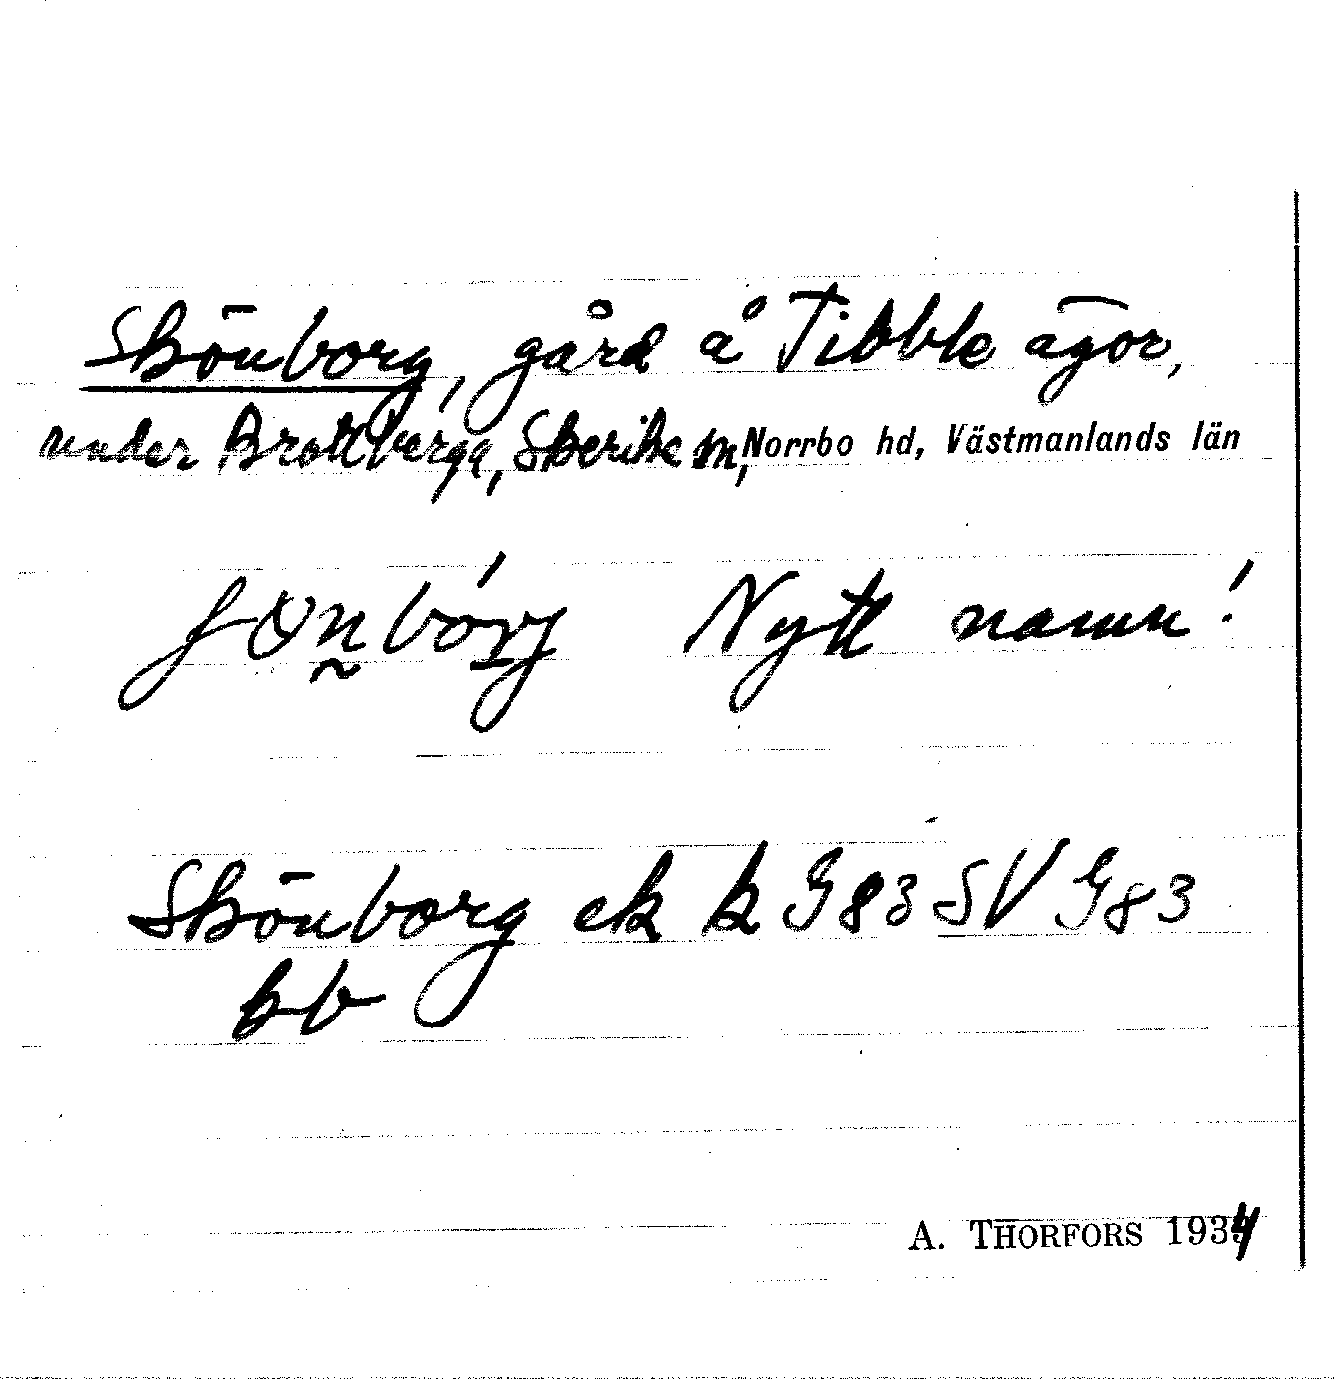 Skönborg, gård å Tibble ägor,
under Brottberga, Skerike sn, Norrbo hd, Västmanlands län
Nytt namn!
Skönborg ek k G 83 SV G 83
bb
A. THORFORS 1934